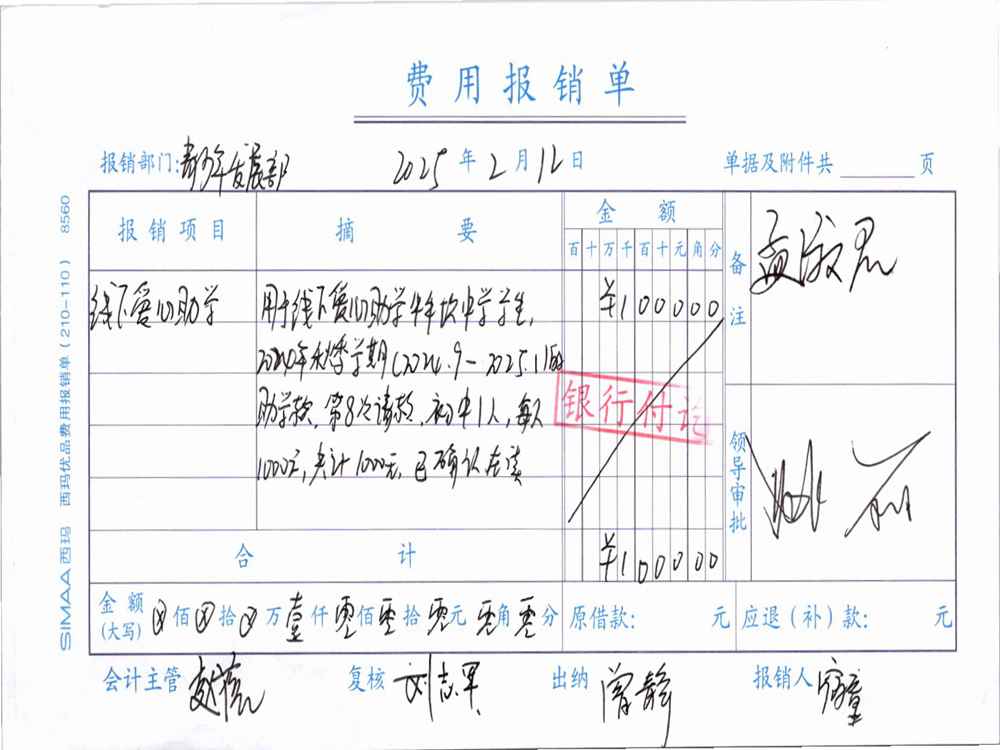 费用报销单
报销部门: 青少年发展部 2025年2月12日 单据及附件共 页
报销项目 摘要 金额 备注
百十万千百十元角分
线下爱心助学 用于线下爱心助学 中学学生, ¥100000
2024年秋季学期(2024.9-2025.1)的
助学款,第8次请款,初中1人,每人
1000元,共计1000元,已确认在读
银行付讫
领导审批
合计 ¥100000
金额(大写) 佰 拾 万壹仟零佰零拾零元零角零分 原借款: 元 应退(补)款: 元
会计主管 复核 刘志军 出纳 曾静 报销人
SIMAA西玛 西玛优品费用报销单(210-110) 8560